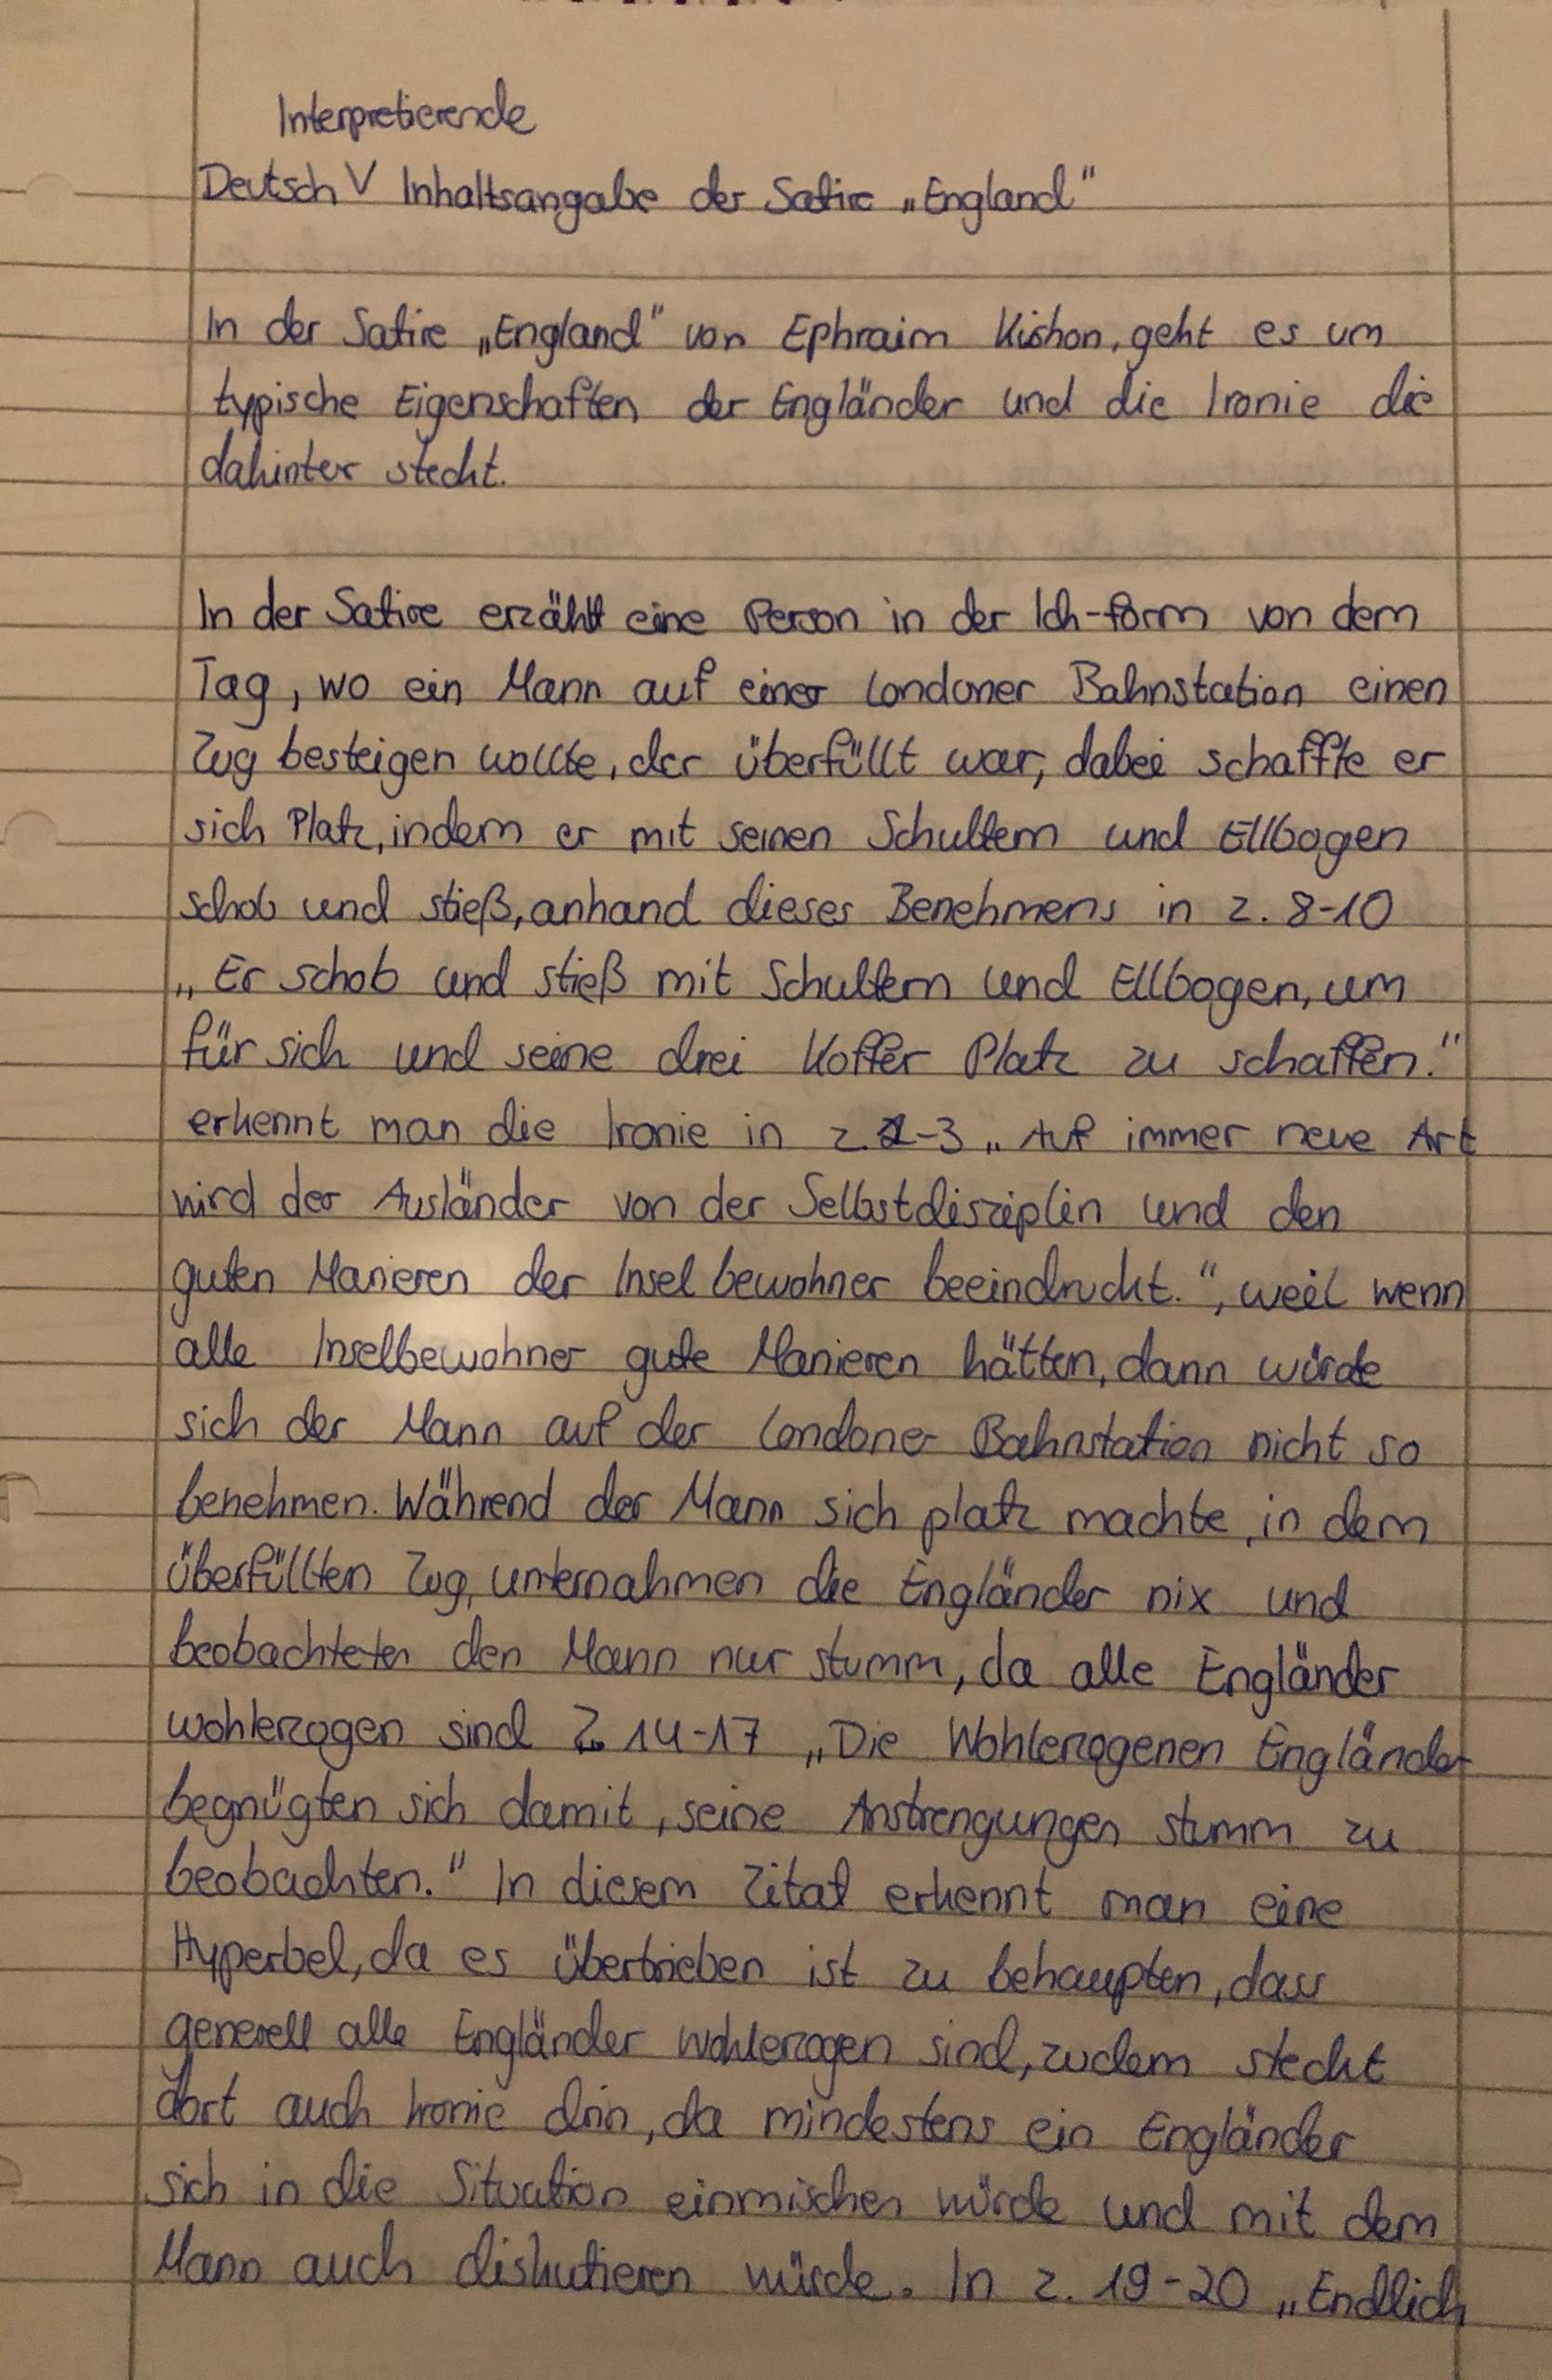 Interpretierende
Deutsch V Inhaltsangabe der Satire „England"
In der Satire „England" von Ephraim Kishon, geht es um
typische Eigenschaften der Engländer und die Ironie die
dahinter steckt.
In der Satire erzählt eine Person in der Ich-form von dem
Tag, wo ein Mann auf einer Londoner Bahnstation einen
Zug besteigen wollte, der überfüllt war, dabei schaffte er
sich Platz, indem er mit seinen Schultern und Ellbogen
schob und stieß, anhand dieses Benehmens in z. 8-10
„Er schob und stieß mit Schultern und Ellbogen, um
für sich und seine drei Koffer Platz zu schaffen."
erkennt man die Ironie in z. 1-3 „Auf immer neue Art
wird der Ausländer von der Selbstdisziplin und den
guten Manieren der Insel bewohner beeindruckt.", weil wenn
alle Inselbewohner gute Manieren hätten, dann würde
sich der Mann auf der Londoner Bahnstation nicht so
benehmen. Während der Mann sich platz machte, in dem
überfüllten Zug, unternahmen die Engländer nix und
beobachteten den Mann nur stumm, da alle Engländer
wohlerzogen sind Z. 14-17 „Die Wohlerzogenen Engländer
begnügten sich damit, seine Anstrengungen stumm zu
beobachten." In diesem Zitat erkennt man eine
Hyperbel, da es übertrieben ist zu behaupten, dass
generell alle Engländer wohlerzogen sind, zudem steckt
dort auch Ironie drin, da mindestens ein Engländer
sich in die Situation einmischen würde und mit dem
Mann auch diskutieren würde. In z. 19-20 „Endlich